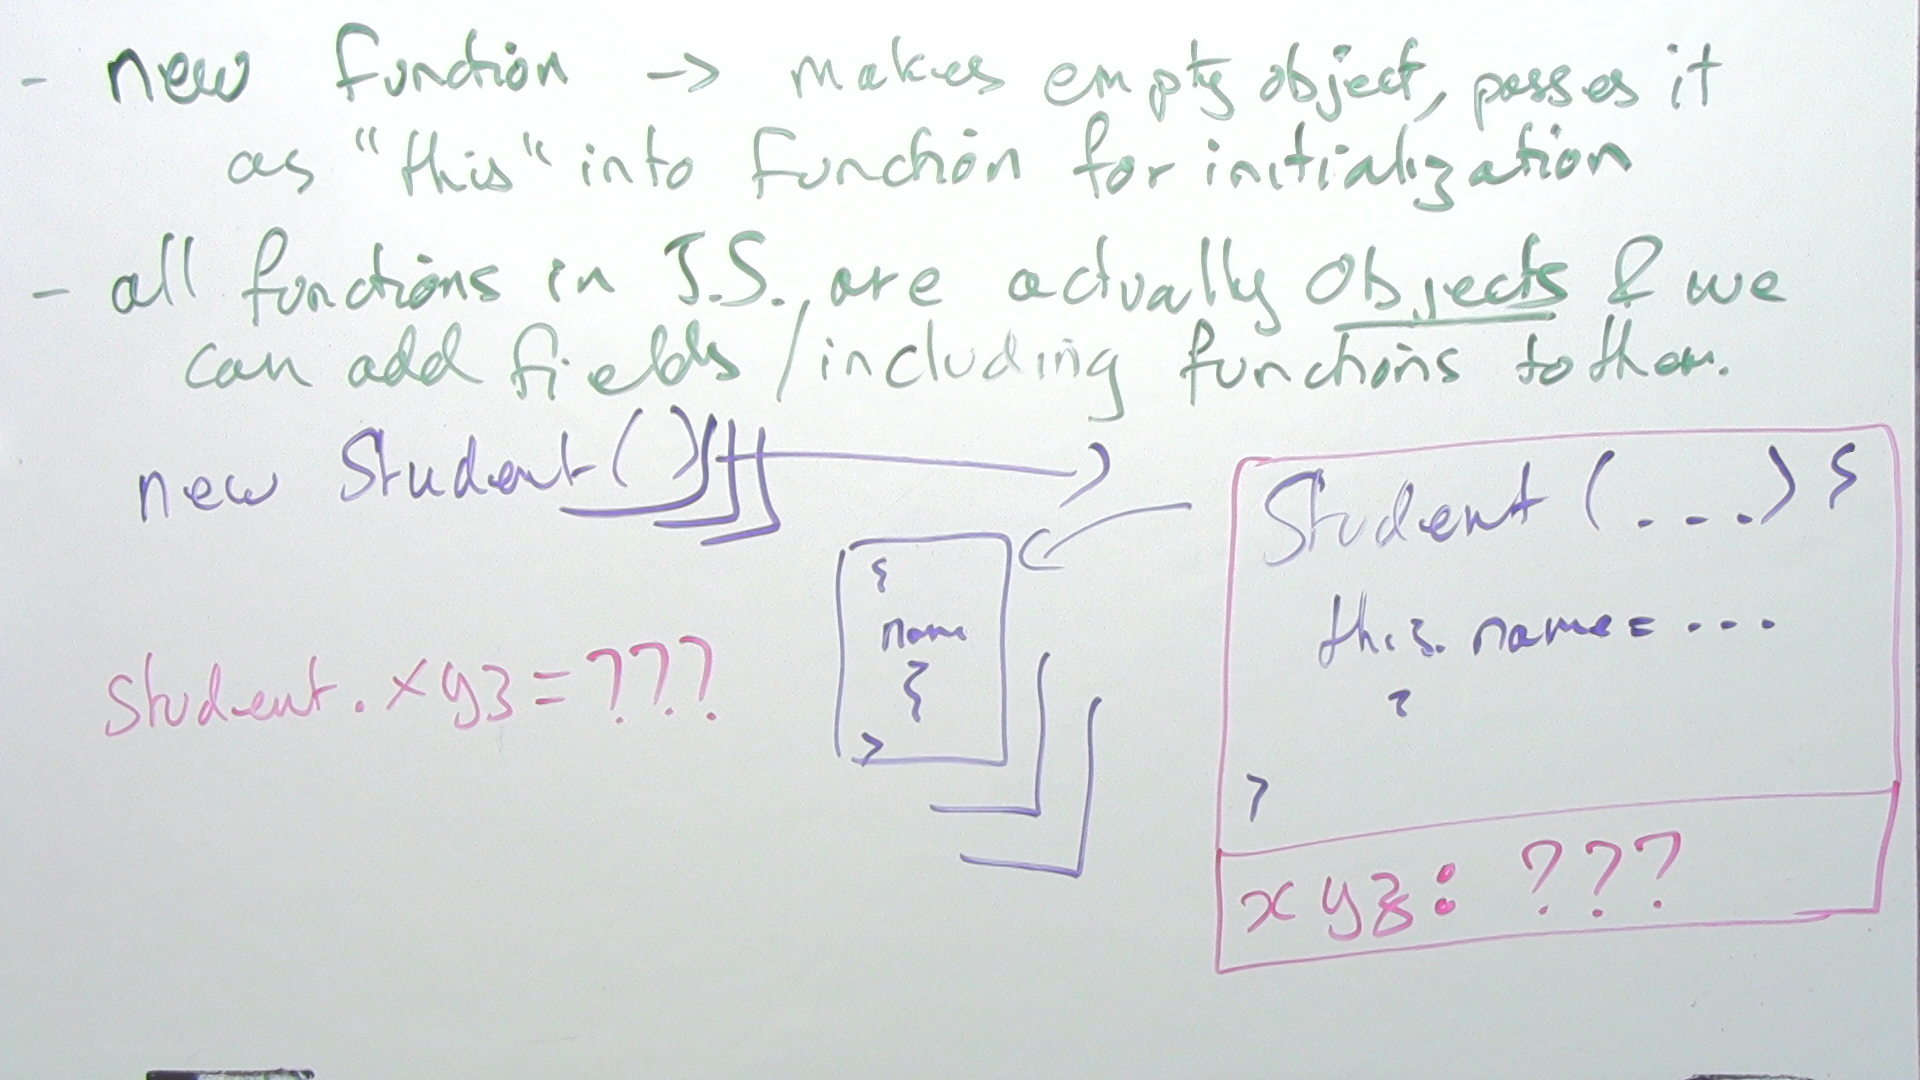 - new function -> makes empty object, passes it
as "this" into function for initialization
- all functions in J.S. are actually Objects & we
can add fields / including functions to them.
new Student()
Student (...) {
this.name = ...
}
{
name
}
Student.xyz = ???
xyz: ???